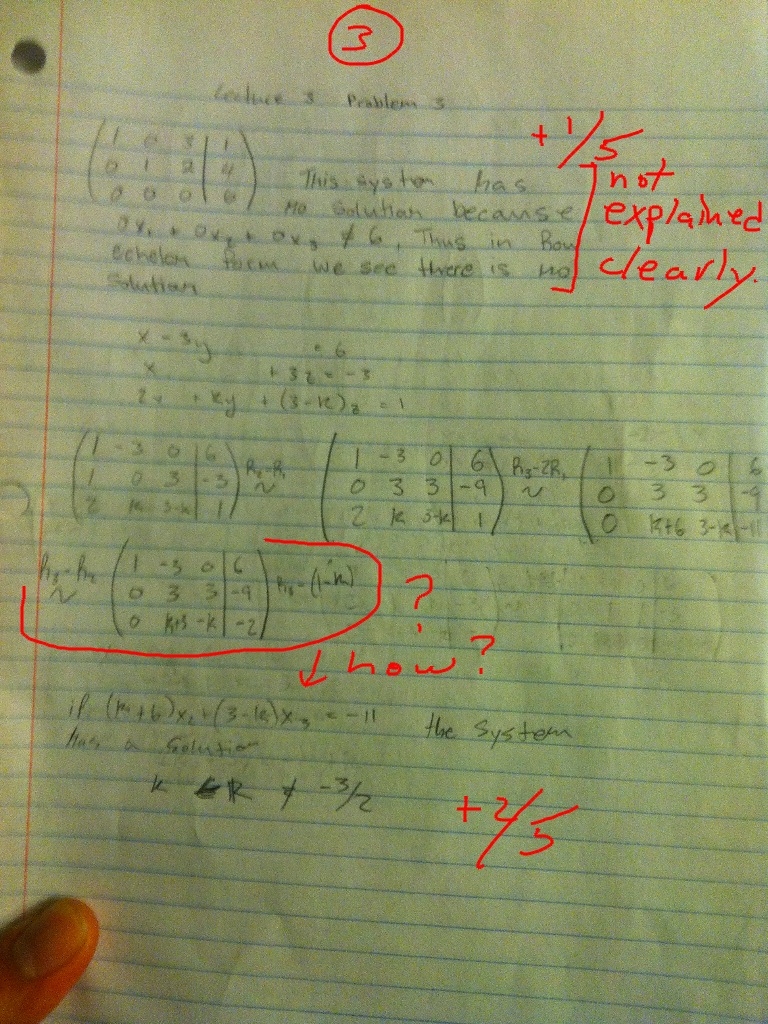 3
Lecture 3 Problem 3
+ 1/5
1 0 3 | 1
0 1 2 | 4
0 0 0 | 6
This system has
no solution because
0x₁ + 0x₂ + 0x₃ ≠ 6, Thus in Row
echelon form we see there is no
solution
not
explained
clearly.
x - 3y = 6
x + 3z = -3
2x + ky + (3-k)z = 1
1 -3 0 | 6
1 0 3 | -3
2 k 3-k | 1
R₂-R₁
~
1 -3 0 | 6
0 3 3 | -9
2 k 3-k | 1
R₃-2R₁
~
1 -3 0 | 6
0 3 3 | -9
0 k+6 3-k | -11
R₃-R₂
~
1 -3 0 | 6
0 3 3 | -9
0 k+3 -k | -2
?
↓ how?
if (k+6)x₂+(3-k)x₃ = -11 the system
has a solution
k ≠ -3/2
+ 2/5